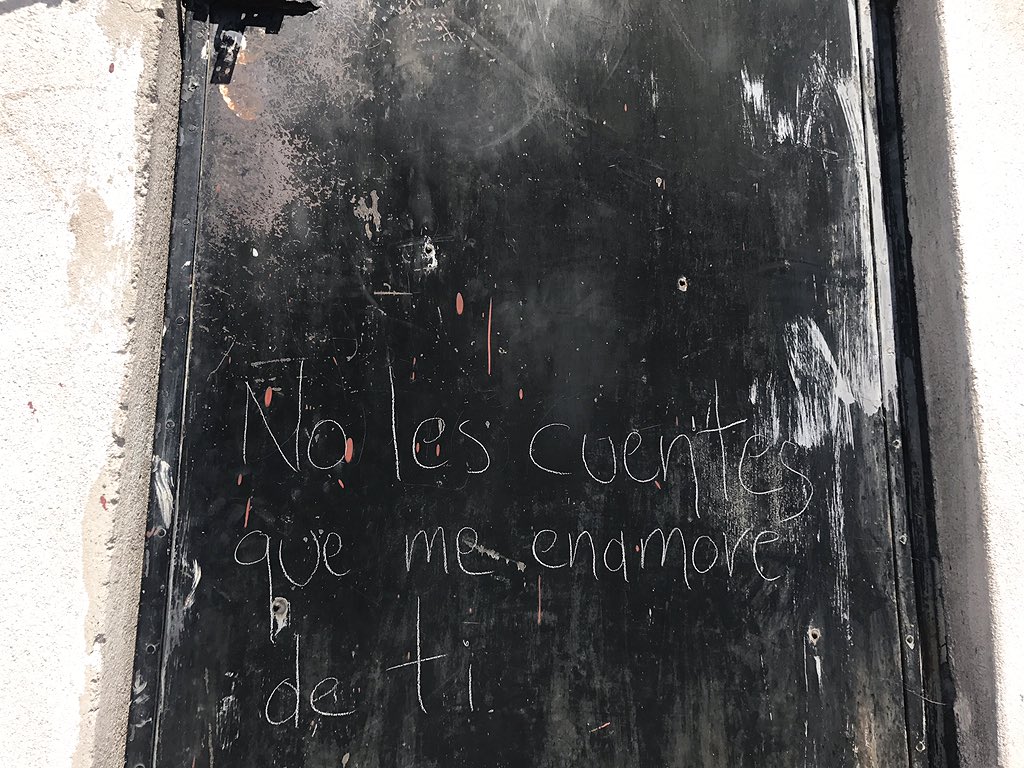 No les cuentes
que me enamore
de ti